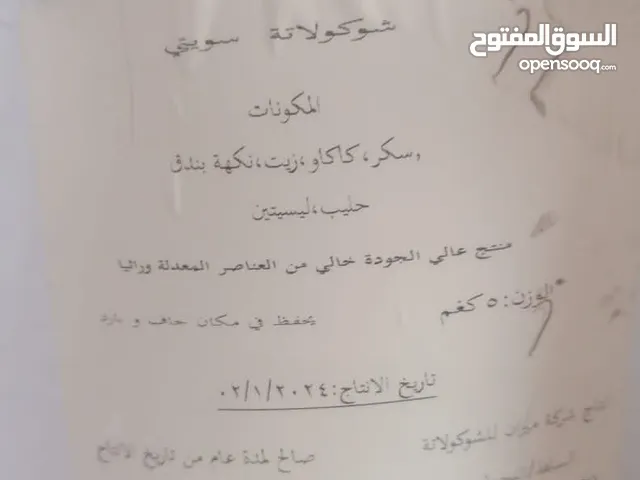 السوق المفتوح
opensooq.com
شوكولاتة سويتي
المكونات
سكر، كاكاو، زيت، نكهة بندق,
حليب، ليسيتين
منتج عالي الجودة خالي من العناصر المعدلة وراثيا
الوزن: ٥ كغم
يحفظ في مكان جاف و بارد
تاريخ الانتاج: ٠٢/١/٢٠٢٤
انتاج شركة للشوكولاتة
صالح لمدة عام من تاريخ الانتاج